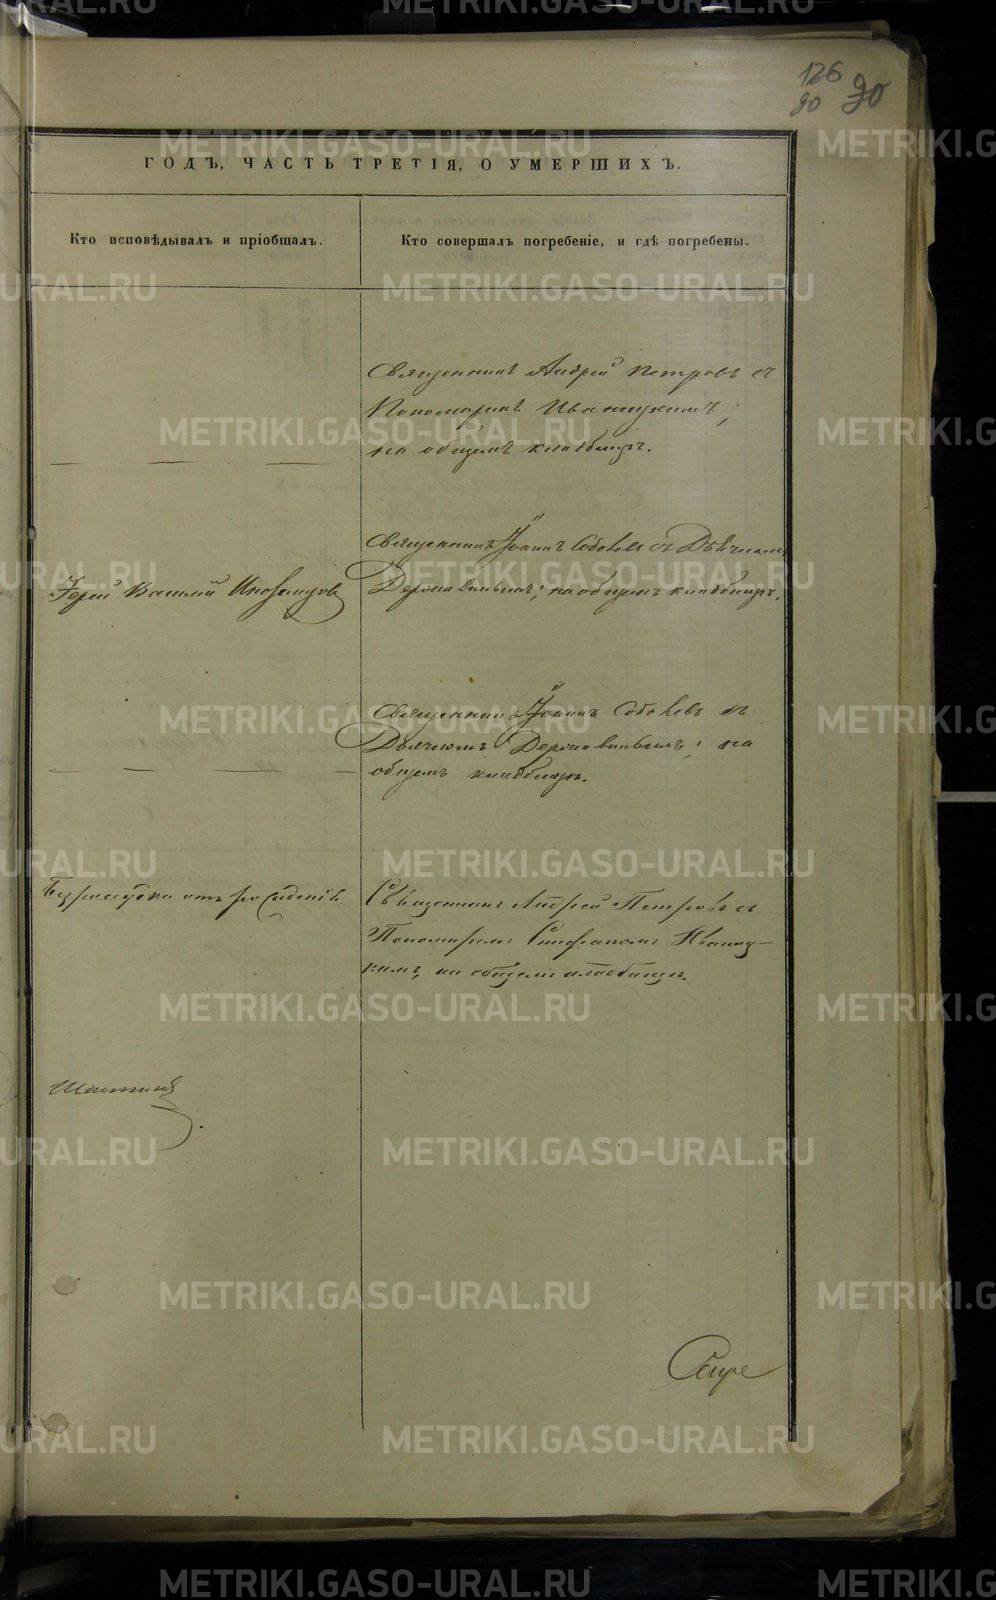 126
90 90
ГОДЪ, ЧАСТЬ ТРЕТІЯ, О УМЕРШИХЪ.
Кто исповѣдывалъ и пріобщалъ.
Кто совершалъ погребеніе, и гдѣ погребены.
Священникъ Андрей Петровъ съ
Пономаремъ Иваницкимъ;
на общемъ кладбищѣ.
Іерей Василій Иноземцовъ
Священникъ Іоаннъ Соболевъ съ Дьячкомъ
на общемъ кладбищѣ.
Священникъ Іоаннъ Соболевъ съ
Дьячкомъ на
общемъ кладбищѣ.
отъ
Священникъ Андрей Петровъ съ
Пономаремъ Стефаномъ Иваниц-
кимъ, на общемъ кладбищѣ.
METRIKI.GASO-URAL.RU